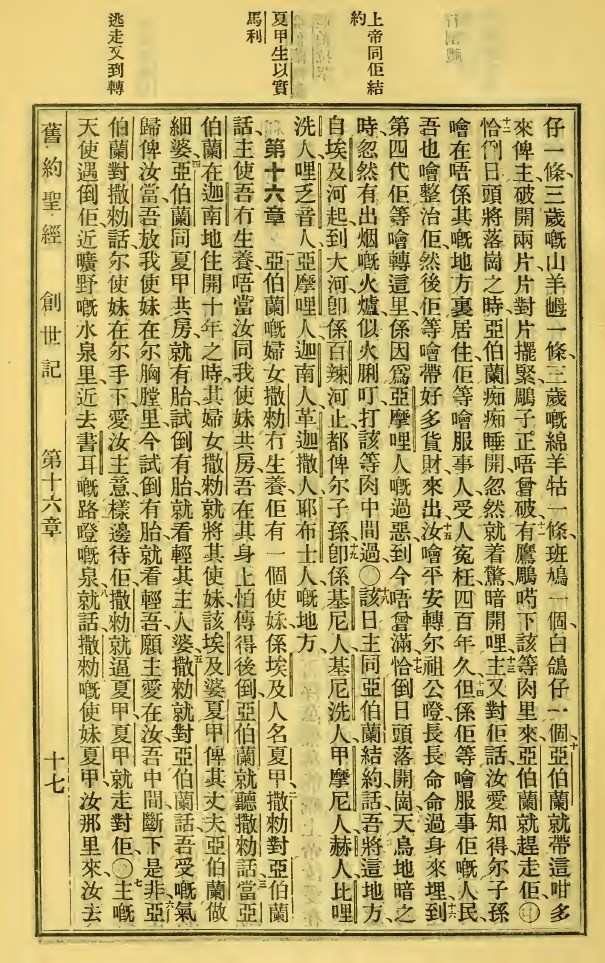 上帝同佢結
約
夏甲生以實
馬利
逃走又到轉
仔一條、三歲嘅山羊一條、三歲嘅綿羊牯一條、班鳩一個、白鴿仔一個、十亞伯蘭就帶這咁多
來俾主、破開兩片、片對片擺緊、鵰子正唔曾破、十一有鷹鵰下該等肉里來、亞伯蘭就趕走佢、〇
十二恰們日頭將落崗之時、亞伯蘭痴痴睡開、忽然就着驚暗開哩、十三主又對佢話、汝愛知得、尔子孫
噲在唔係其嘅地方裏居住、佢等噲服事人、受人寃枉四百年久、十四但係佢等噲服事佢嘅人民、
吾也噲整治佢、然後佢等噲帶好多貨財來出、十五汝噲平安轉尔祖公噔、長長命命過身來埋、十六到
第四代佢等噲轉這里、係因爲亞摩哩人嘅過惡、到今唔曾滿、十七恰倒日頭落開崗、天烏地暗之
時、忽然有出烟嘅火爐、似火脷叮打該等肉中間過、〇十八該日主同亞伯蘭結約、話、吾將這地方、
自埃及河起、到大河卽係百辣河止、都俾尔子孫、十九卽係基尼人、基尼洗人、甲摩尼人、赫人、比哩
洗人、哩乏音人、亞摩哩人、迦南人、革迦撒人、耶布士人嘅地方、
第十六章 一亞伯蘭嘅婦女撒勑冇生養、佢有一個使妹、係埃及人、名夏甲、二撒勑對亞伯蘭
話、主使吾冇生養、唔當汝同我使妹共房、吾在其身上、怕傳得後倒、亞伯蘭就聽撒勑話、三當亞
伯蘭在迦南地住開十年之時、其婦女撒勑就將其使妹、該埃及婆夏甲、俾其丈夫亞伯蘭做
細婆、四亞伯蘭同夏甲共房就有胎、試倒有胎、就看輕其主人婆、五撒勑就對亞伯蘭話、吾受嘅氣
歸俾汝當、吾放我使妹在尔胸膛里、今試倒有胎、就看輕吾、願主愛在汝吾中間斷下是非、六亞
伯蘭對撒勑話、尔使妹在尔手下、愛汝主意樣邊待佢、撒勑就逼夏甲、夏甲就走對佢、〇七主嘅
天使遇倒佢、近曠野嘅水泉里、近去書耳嘅路噔嘅泉、八就話、撒勑嘅使妹夏甲、汝那里來、汝去
舊約聖經 創世記 第十六章 十七